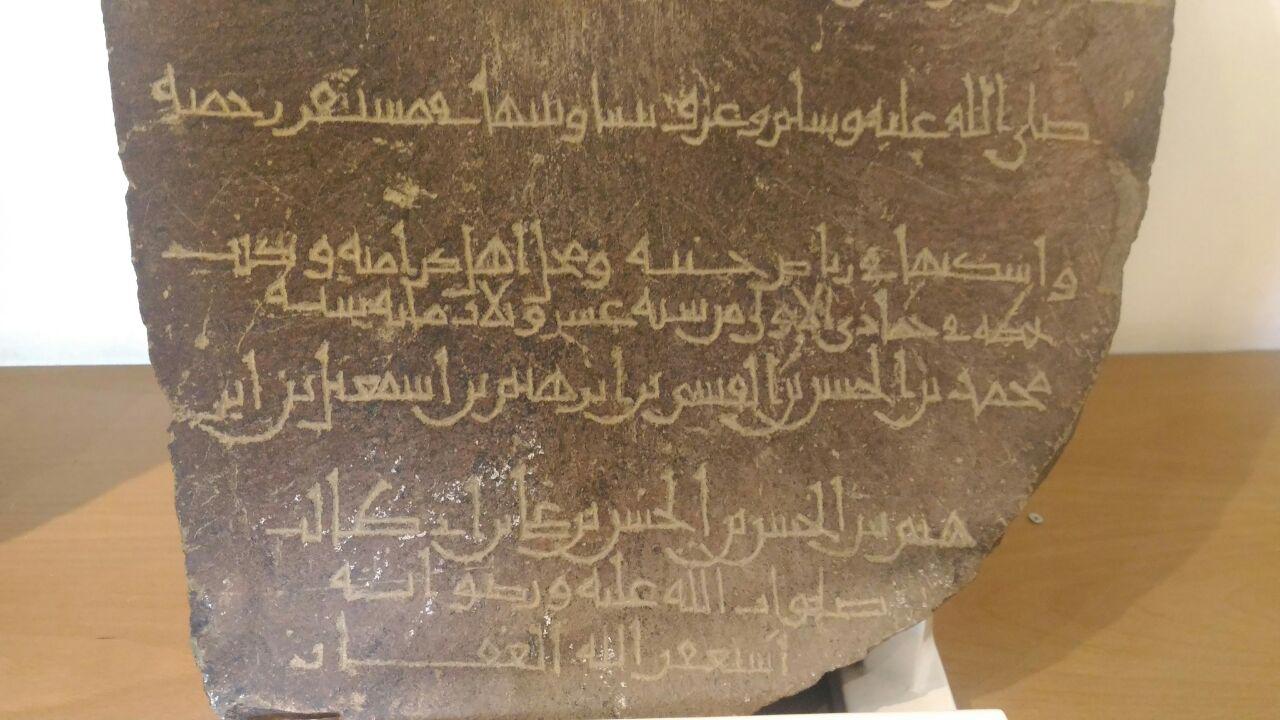 صلى الله عليه وسلم وعرف في مستقر رحمته
واسكنها في رياض جنته ومحل اهل كرامته وكتب
بخطه في جمادى الاولى من سنة عشر وثلاث مايه سنة
محمد بن الحسن بن القسم بن ابرهيم بن اسمعيل بن ابر
هيم بن الحسن بن الحسن بن علي بن ابي طالب
صلوات الله عليه ورضوانه
استغفر الله الغفار